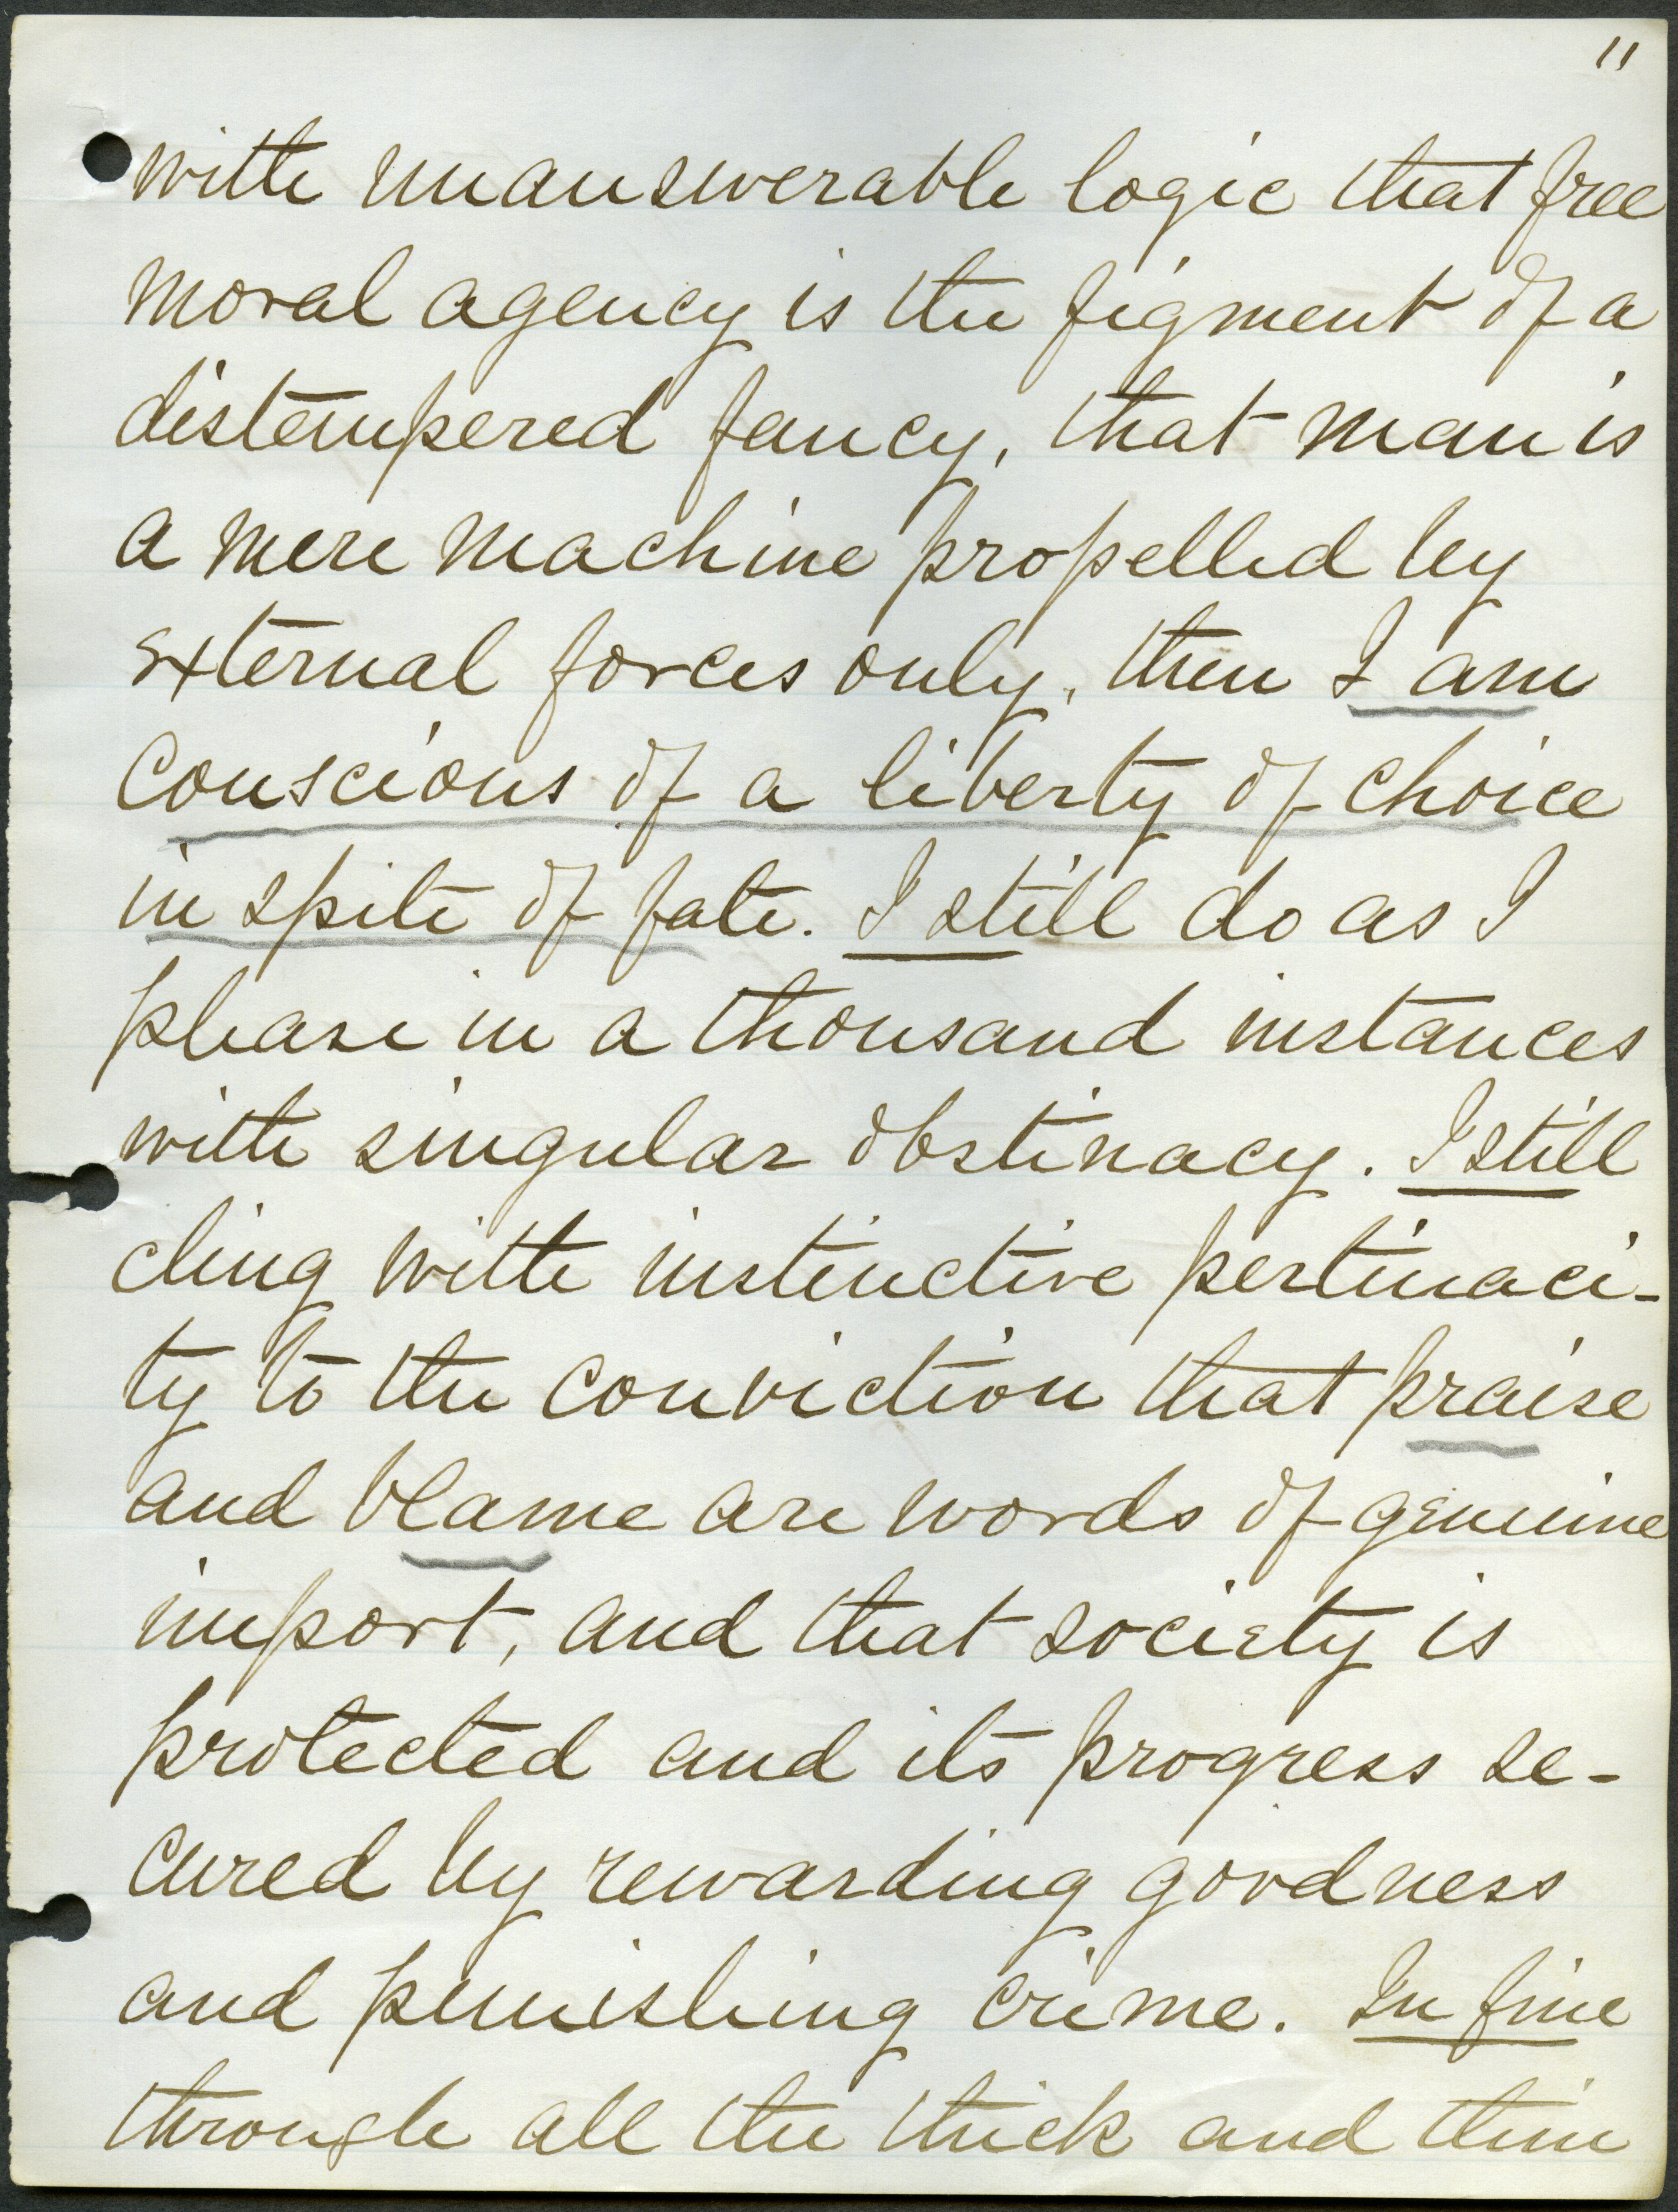 11
with unanswerable logic that free
moral agency is the figment of a
distempered fancy, that man is
a mere machine propelled by
external forces only, then I am
conscious of a liberty of choice
in spite of fate. I still do as I
please in a thousand instances
with singular obstinacy. I still
cling with instinctive pertinaci-
ty to the conviction that praise
and blame are words of genuine
import, and that society is
protected and its progress se-
cured by rewarding goodness
and punishing crime. In fine
through all the thick and thin